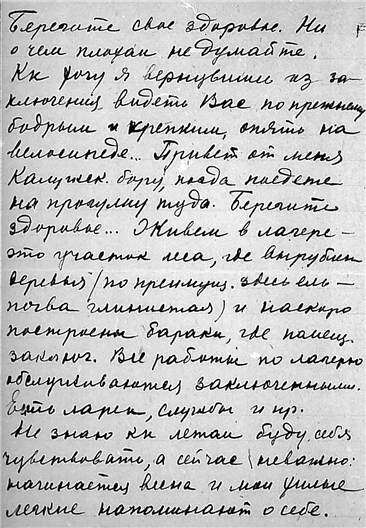 Берегите свое здоровье. Ни
о чем плохом не думайте.
Кк хочу я вернувшись из за-
ключения видеть Вас по прежнему
бодрым и крепким, опять на
велосипеде... Привет от меня
Калужск. бору, когда поедете
на прогулку туда. Берегите
здоровье... Живем в лагере —
это участок леса, где вырублены
деревья (по преимущ. здесь ель —
почва глинистая) и наскоро
построены бараки, где помещ.
заключ. Все работы по лагерю
обслуживаются заключенными.
Есть ларек, службы и пр.
Не знаю кк летом буду себя
чувствовать, а сейчас неважно:
начинается весна и мои
легкие напоминают о себе.